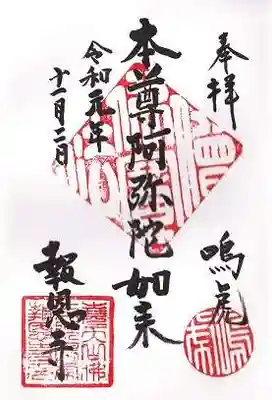 奉拝
鳴虎
本尊阿弥陀如来
令和元年
十一月二日
報恩寺